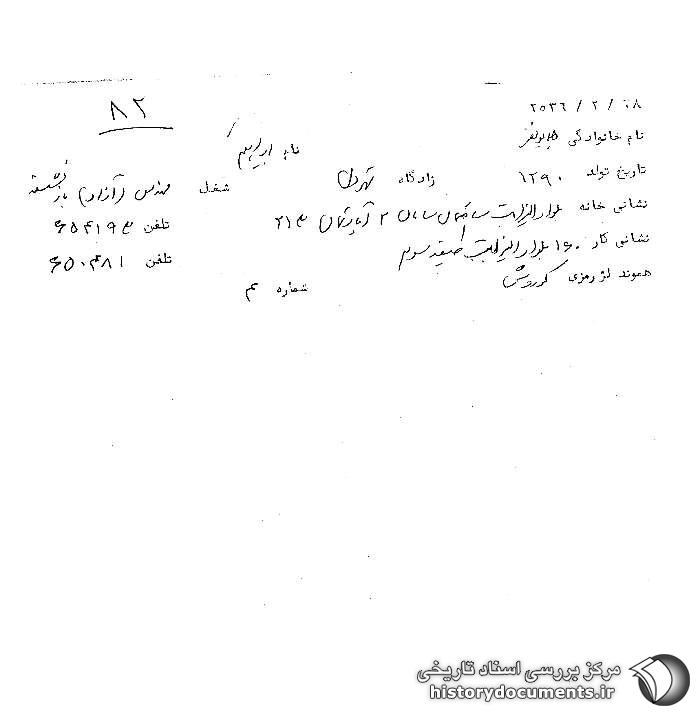 ۸۲
۲۵۳۶ / ۲ / ۰۸
نام خانوادگی همایونفر نام ابراهیم
تاریخ تولد ۱۲۹۰ زادگاه تهران شغل مهندس (آزاد) بازنشسته
نشانی خانه بلوار الیزابت ساختمان سامان ۲ آپارتمان ۲۱۳ تلفن ۶۵۴۱۹۳
نشانی کار ۱۶۰ بلوار الیزابت طبقه سوم تلفن ۶۵۰۴۸۱
هموند لژ رمزی کوروش شماره ۳
مرکز بررسی اسناد تاریخی
historydocuments.ir